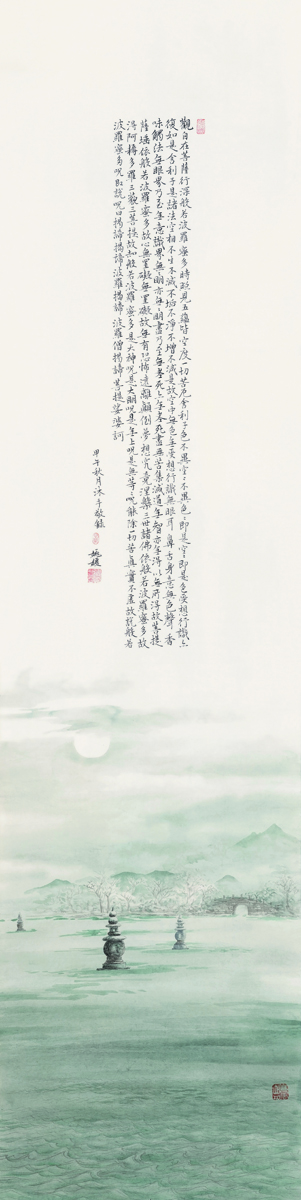 觀自在菩薩行深般若波羅蜜多時照見五蘊皆空度一切苦厄舍利子色不異空々不異色々即是空々即是色受想行識亦
復如是舍利子是諸法空相不生不滅不垢不淨不增不減是故空中無色無受想行識無眼耳鼻舌身意無色聲香
味觸法無眼界乃至無意識界無無明亦無無明盡乃至無老死亦無老死盡無苦集滅道無智亦無得以無所得故菩提
薩埵依般若波羅蜜多故心無罣礙無罣礙故無有恐怖遠離顛倒夢想究竟涅槃三世諸佛依般若波羅蜜多故
得阿耨多羅三藐三菩提故知般若波羅蜜多是大神呪是大明呪是無上呪是無等々呪能除一切苦真實不虛故說般若
波羅蜜多呪即說呪曰揭諦揭諦波羅揭諦波羅僧揭諦菩提娑婆訶
甲午秋月沐手敬錄
姚媛